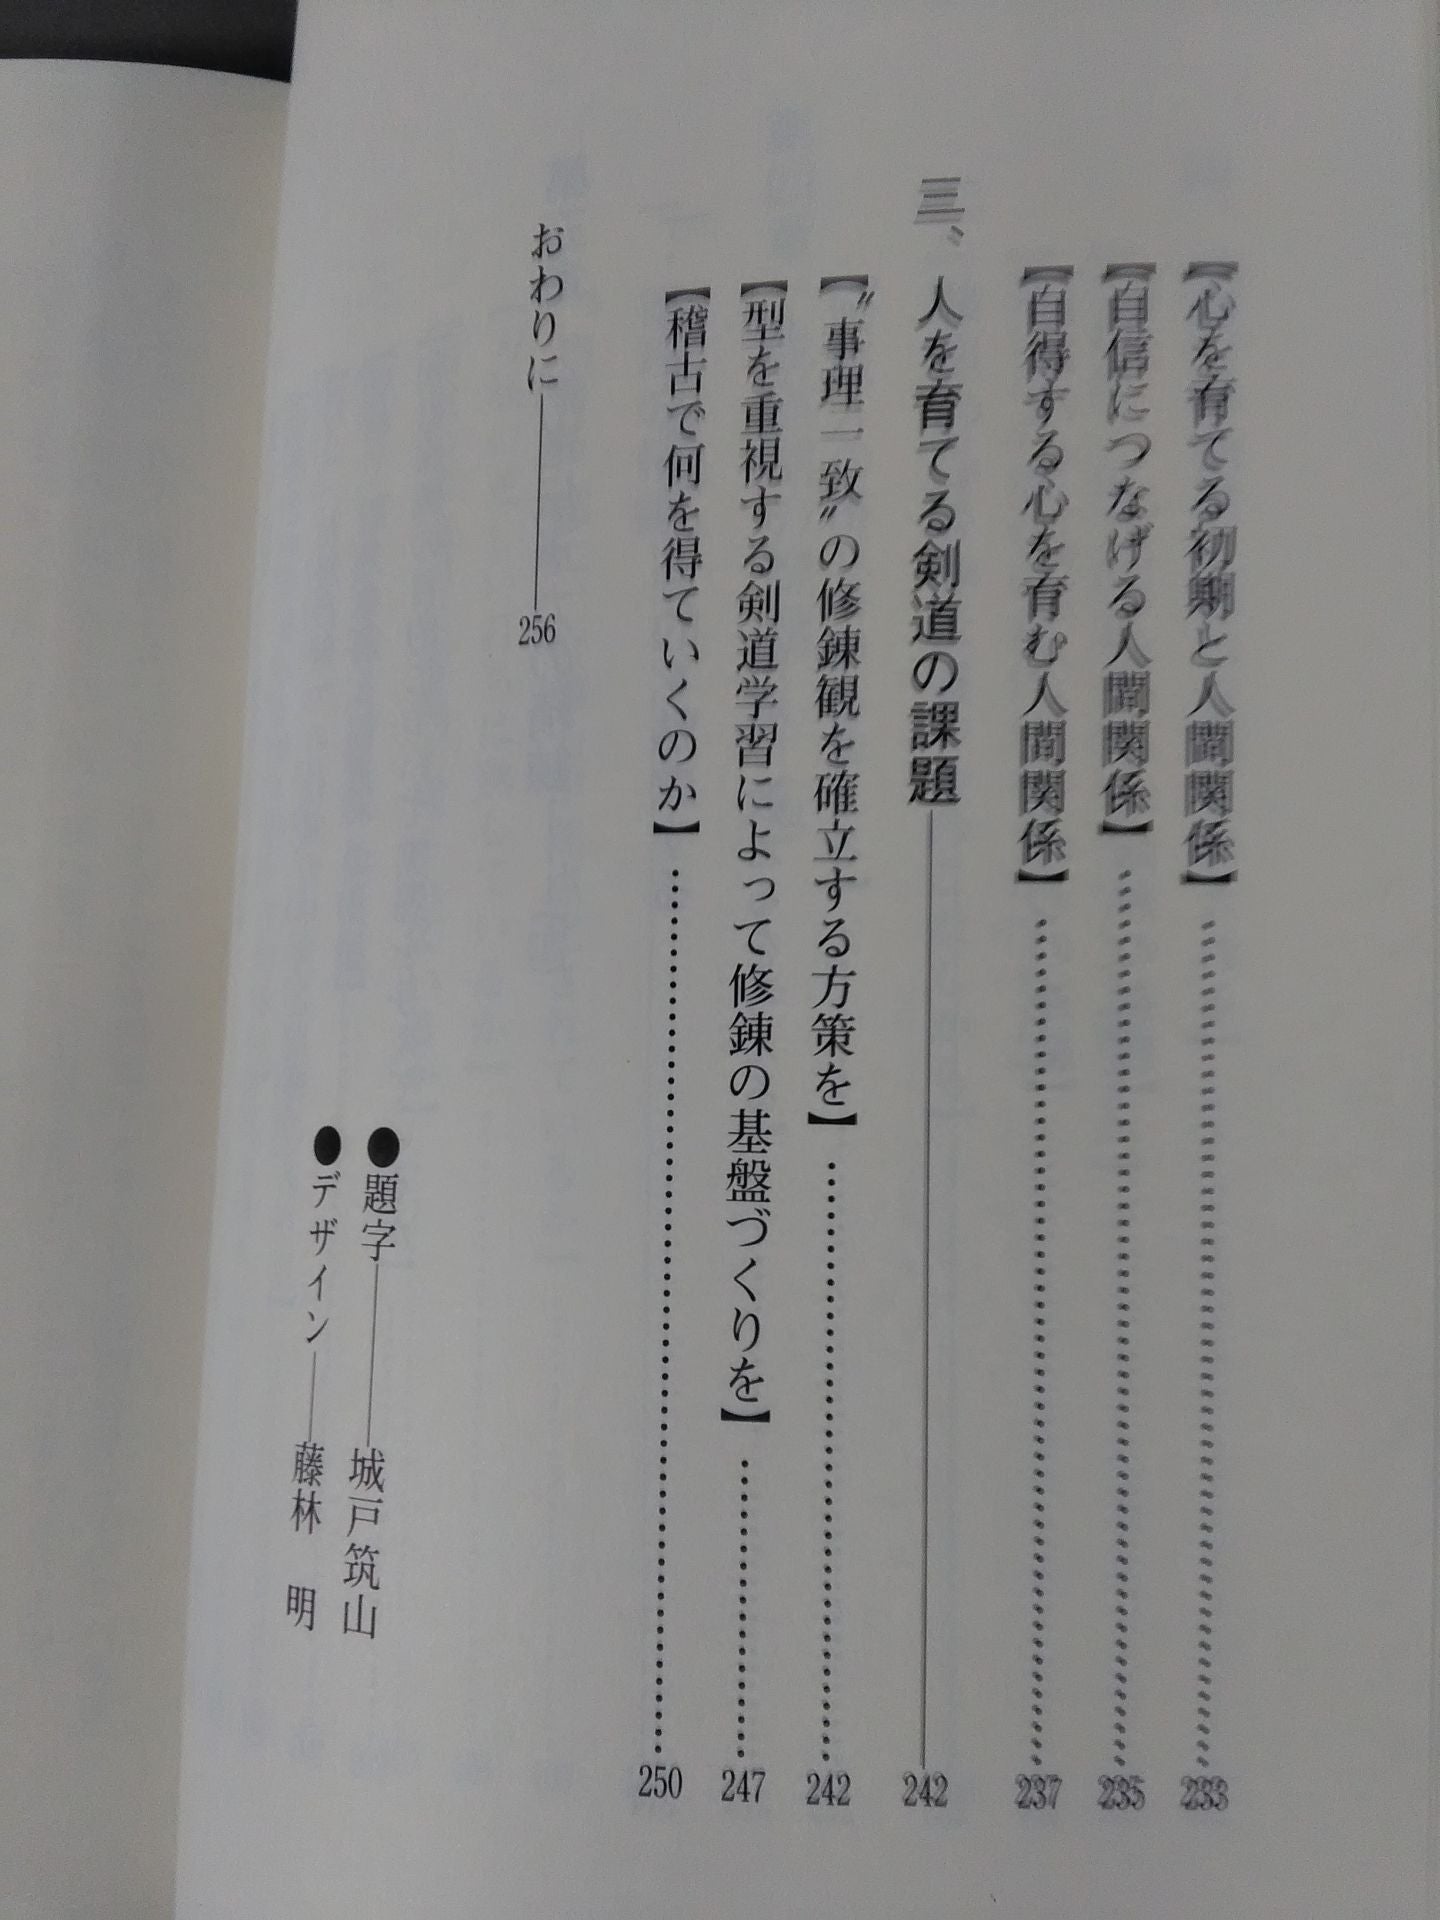 【心を育てる初期と人間関係】……………………233
【自信につなげる人間関係】……………………235
【自得する心を育む人間関係】……………………237
三、人を育てる剣道の課題――――242
【〝事理一致〟の修錬観を確立する方策を】……………………242
【型を重視する剣道学習によって修錬の基盤づくりを】…………247
【稽古で何を得ていくのか】……………………250
おわりに――――256
●題字――――城戸筑山
●デザイン――藤林　明